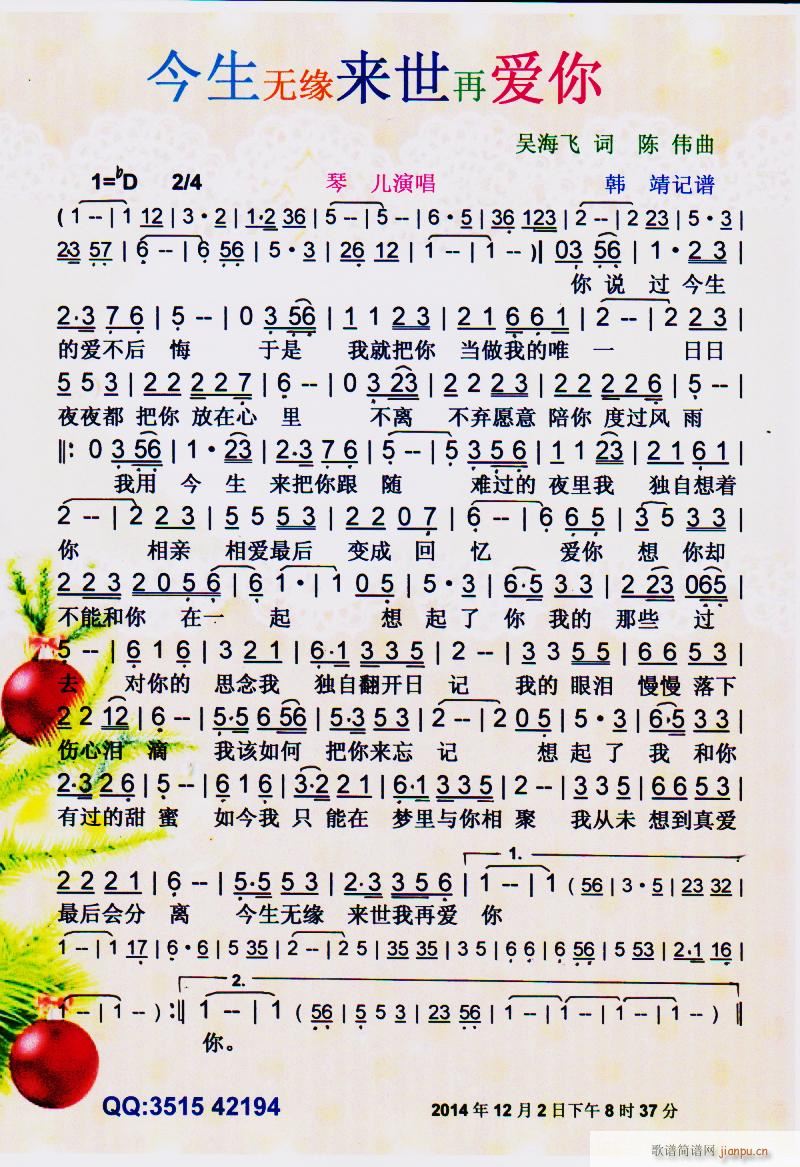 今生无缘来世再爱你
吴海飞 词 陈 伟曲
1=ᵇD 2/4 琴 儿演唱 韩 靖记谱
( 1 -- | 1 12 | 3·2 | 1·2 36 | 5 -- | 5 -- | 6·5 | 36 123 | 2 -- | 2 23 | 5·3 |
23 57 | 6 -- | 6 56 | 5·3 | 26 12 | 1 -- | 1 -- )| 03 56 | 1·2 3 |
你 说 过 今生
2·3 7 6 | 5 -- | 0 3 56 | 1 1 2 3 | 2 1 6 6 1 | 2 -- | 2 2 3 |
的爱不后 悔 于是 我就把你 当做我的唯 一 日日
5 5 3 | 2 2 2 2 7 | 6 -- | 0 3 23 | 2 2 5 5 | 2 2 2 2 6 | 5 -- |
夜夜都 把你 放在心 里 不离 不弃愿意 陪你 度过风 雨
‖: 0 3 56 | 1·23 | 2·3 7 6 | 5 -- | 5 3 5 6 | 1 1 23 | 2 1 6 1 |
我用 今 生 来把你跟 随 难过的 夜里我 独自想着
2 -- | 2 2 3 | 5 5 5 3 | 2 2 0 7 | 6 -- | 6 6 5 | 3 5 5 3 |
你 相亲 相爱最后 变成 回 忆 爱你 想 你却
2 2 3 2 0 5 6 | 6 1· | 1 0 5 | 5·3 | 6·5 3 3 | 2 23 065 |
不能和你 在一 起 想 起了 你 我的 那些 过
5 -- | 6 1 6 | 3 2 1 | 6·1 3 3 5 | 2 -- | 3 3 5 5 | 6 6 5 3 |
去 对你的 思念我 独自翻开日 记 我的 眼泪 慢慢 落下
2 2 12 | 6 -- | 5·5 6 56 | 5·3 5 3 | 2 -- | 2 0 5 | 5·3 | 6·5 3 3 |
伤心泪 滴 我该如何 把你来忘 记 想 起了 我 和你
2·3 2 6 | 5 -- | 6 1 6 | 3·2 2 1 | 6·1 3 3 5 | 2 -- | 3 3 5 | 6 6 5 3 |
有过的甜 蜜 如今我 只 能在 梦里与你相 聚 我从未 想到真爱
1.
2 2 2 1 | 6 -- | 5·5 5 3 | 2·3 3 5 6 | 1 -- | 1 (56 | 3·5 | 23 32 |
最后会分 离 今生无缘 来世我再爱 你
1 -- | 1 17 | 6·6 | 5 35 | 2 -- | 2 5 | 35 35 | 3 5 | 6 6 | 6 56 | 5 53 | 2·1 16 |
2.
1 -- | 1 -- ) :‖ 1 -- | 1 (56 | 5 5 3 | 23 56 | 1 -- | 1 -- | 1 -- | 1 -- ) ‖
你。
QQ:3515 42194
2014 年 12 月 2 日下午 8 时 37 分
歌谱简谱网
jianpu.cn